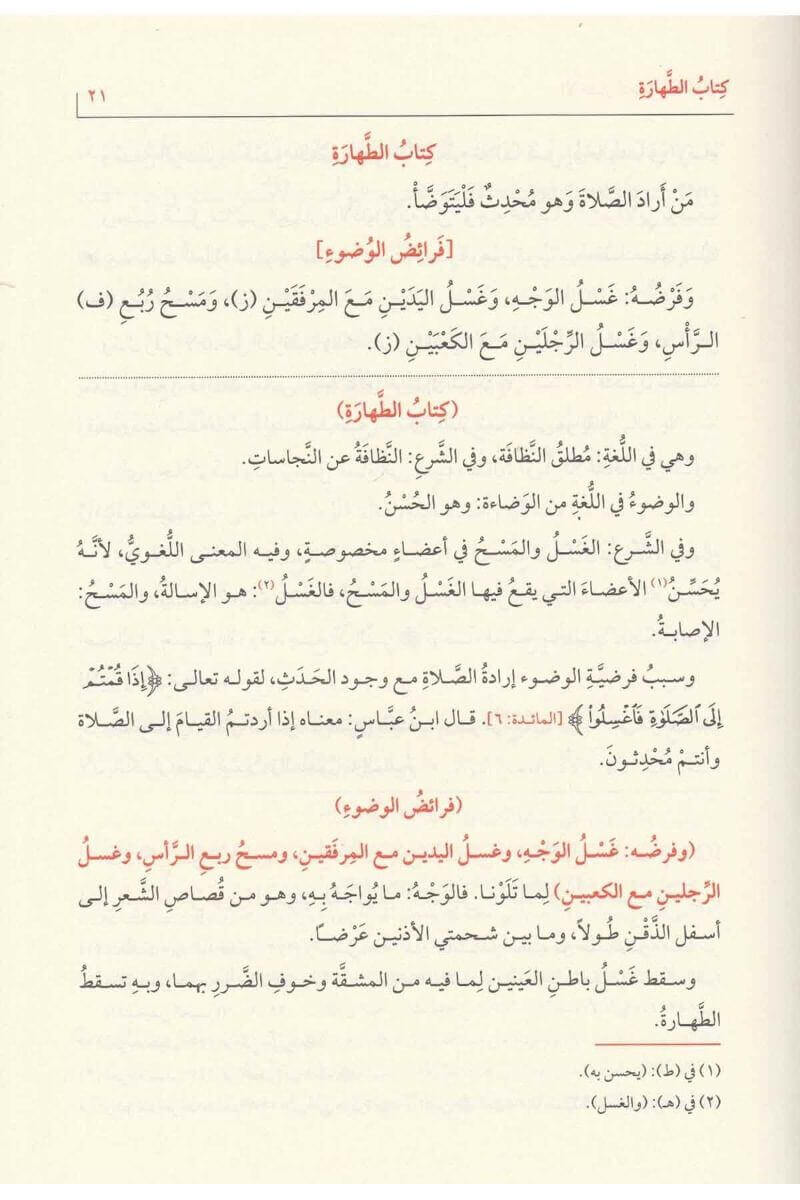 كِتابُ الطَّهارَةِ
٢١
كِتابُ الطَّهارَةِ
مَنْ أَرادَ الصَّلاةَ وَهو مُحْدِثٌ فَلْيَتَوَضَّأْ.
[فَرائِضُ الوُضوءِ]
وَفَرْضُـهُ: غَسْـلُ الوَجْـهِ، وَغَسْـلُ اليَدَيْـنِ مَـعَ المِرْفَقَيْـنِ (ز)، وَمَسْـحُ رُبُـعِ (ف)
الـرَّأْسِ، وَغَسْـلُ الرِّجْلَيْـنِ مَـعَ الكَعْبَيْـنِ (ز).
(كِتابُ الطَّهارَةِ)
وهي في اللُّغةِ: مُطلقُ النَّظافَة، وفي الشَّرعِ: النَّظافَةُ عن النَّجاساتِ.
والوضوءُ في اللُّغةِ من الوَضاءة: وهو الحُسْنُ.
وفي الشَّـرع: الغَسْـلُ والمَسْـحُ في أعضـاءٍ مخصوصـةٍ، وفيـه المعنـى اللُّغـويُّ، لأنَّـهُ
يُحَسِّـنُ(١) الأعضـاءَ التـي يقـعُ فيهـا الغَسْـلُ والمَسْـحُ، فالغَسْـلُ(٢): هـو الإسالـةُ، والمَسْـحُ:
الإصابـةُ.
وسـببُ فرضيَّـةِ الوضـوء إرادةُ الصَّـلاةِ مـع وجـود الحَـدَثِ، لقولـه تعالـى: ﴿إِذَا قُمْتُمْ
إِلَى ٱلصَّلَوٰةِ فَٱغْسِلُوا۟﴾ [المائدة: ٦]. قـال ابـنُ عبَّـاس: معنـاه إذا أردتـمُ القيـامَ إلـى الصَّـلاة
وأنتـمْ مُحْدِثـونَ.
(فرائضُ الوضوءِ)
(وفرضُـه: غَسْـلُ الوَجْـهِ، وغسـلُ اليديـن مـع المِرفَقيـنِ، ومسـحُ ربـعِ الـرَّأسِ، وغسـلُ
الرِّجليـنِ مـع الكعبيـنِ) لِمـا تَلَوْنـا. فالوَجْـهُ: مـا يُواجَـهُ بِـهِ، وهـو مـن قُصـاصِ الشَّـعرِ إلـى
أسـفل الذَّقْـنِ طُـولاً، ومـا بيـن شـحمتي الأذنيـن عَرْضـاً.
وسـقط غَسْـلُ باطـنِ العَينيـن لِمـا فيـه مـن المشقَّـة وخـوفِ الضَّـررِ بهمـا، وبـهِ تسـقطُ
الطَّهـارةُ.
(١) في (ط): (يحسن به).
(٢) في (هـ): (والغسل).